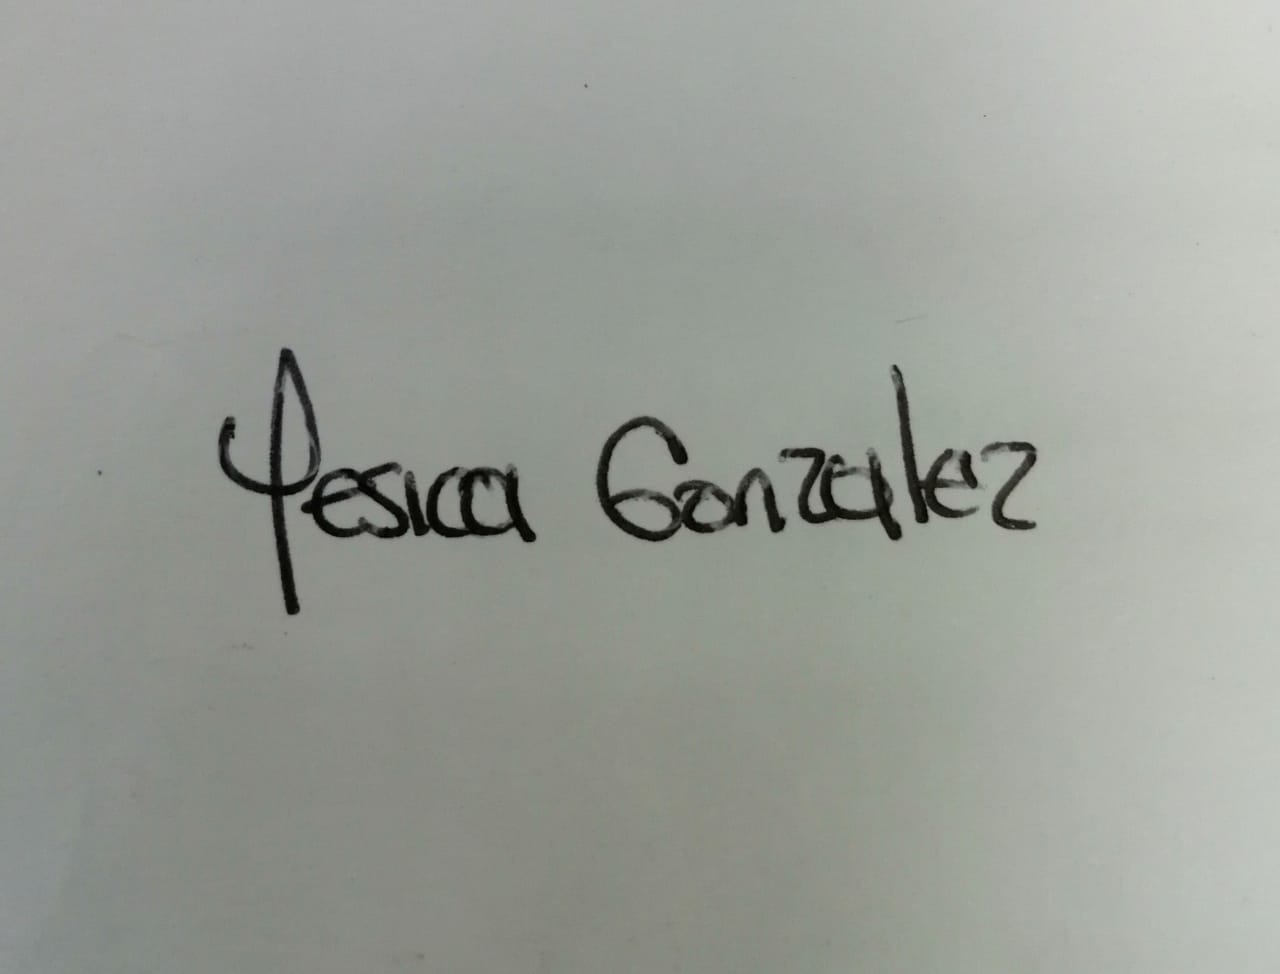 Yesica Gonzalez